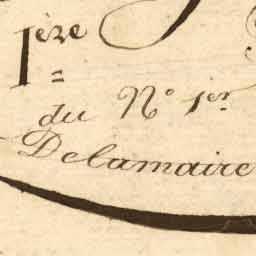 1ère
du N° 1er
Delamaire